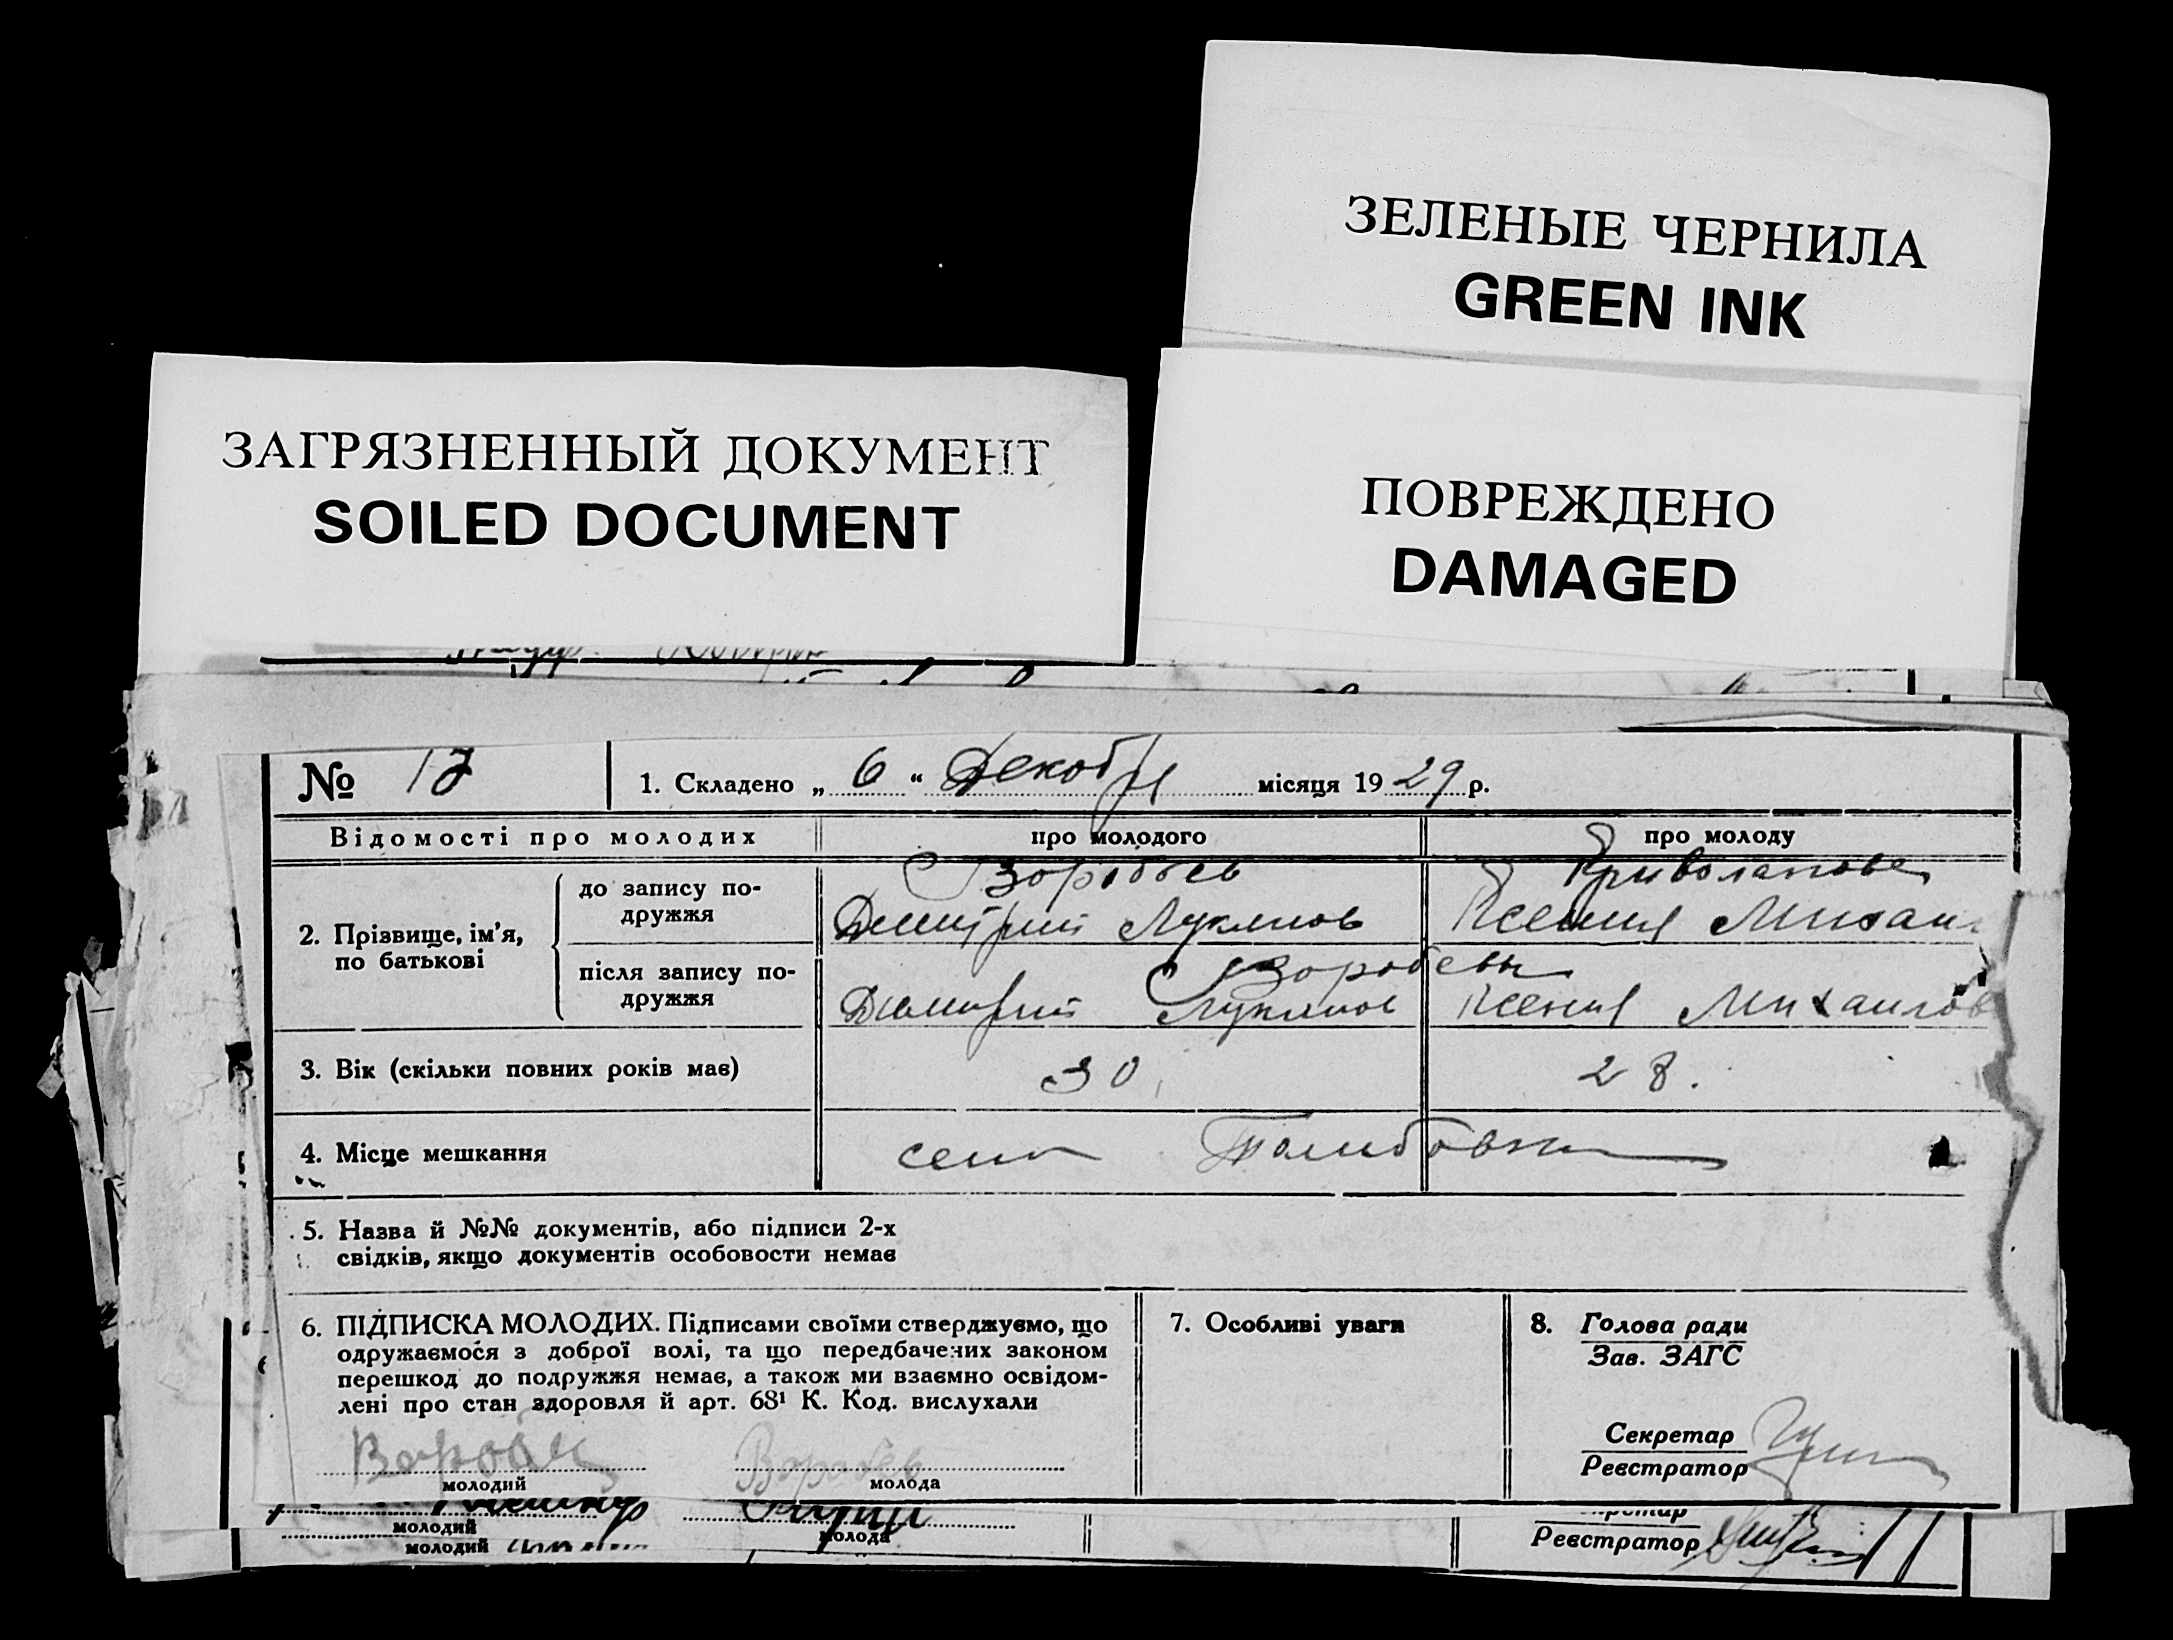 ЗЕЛЕНЫЕ ЧЕРНИЛА
GREEN INK
ЗАГРЯЗНЕННЫЙ ДОКУМЕНТ
SOILED DOCUMENT
ПОВРЕЖДЕНО
DAMAGED
№ 1. Складено „ 6 “ Декабря місяця 1929 р.
Відомості про молодих про молодого про молоду
до запису по-
дружжя
2. Прізвище, ім’я,
по батькові
Воробьев
Дмитрий Лукянов
Ксения Михаил
після запису по-
дружжя
Воробевы
Дмитрий Лукянов Ксения Михаилов
3. Вік (скільки повних років має) 30 28.
4. Місце мешкання село
5. Назва й №№ документів, або підписи 2-х
свідків, якщо документів особовости немає
6. ПІДПИСКА МОЛОДИХ. Підписами своїми стверджуємо, що
одружаємося з доброї волі, та що передбачених законом
перешкод до подружжя немає, а також ми взаємно освідом-
лені про стан здоровля й арт. 68¹ К. Код. вислухали
7. Особливі уваги
8. Голова ради
Зав. ЗАГС
Секретар
Реєстратор
Воробев
молодий молода
молодий молода
молодий
Реєстратор